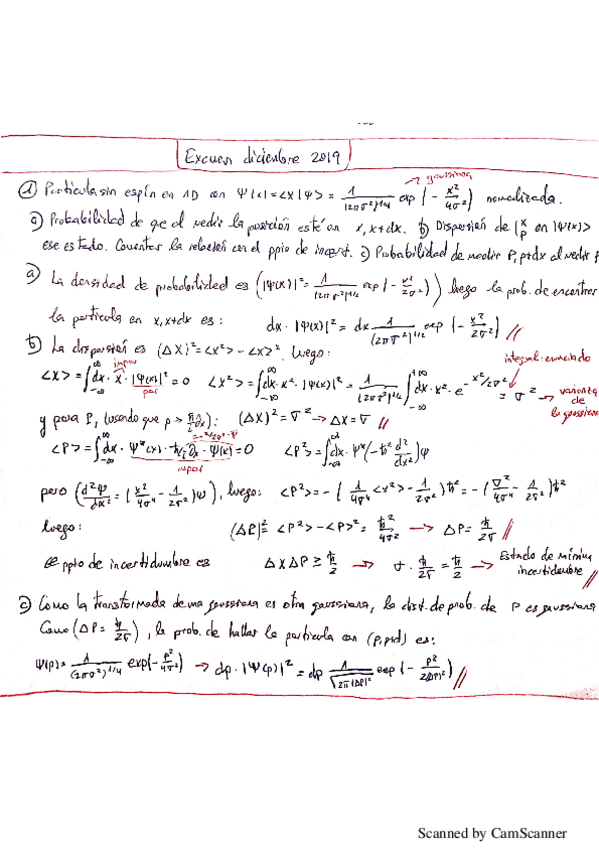 Examen diciembre 2019
① Partícula sin espín en 1D con Ψ(x)=<x|Ψ> = 1/(2πσ²)^1/4 exp(-x²/4σ²) normalizada.
→ gaussiana
a) Probabilidad de que al medir la posición esté en x, x+dx. b) Dispersión de {x p en |Ψ(x)>
ese estado. Comentar la relación con el ppio de incert. c) Probabilidad de medir P, p+dx al medir P
a) La densidad de probabilidad es (|Ψ(x)|² = 1/(2πσ²)^1/2 exp(-x²/2σ²)) luego la prob. de encontrar
la partícula en x, x+dx es: dx·|Ψ(x)|² = dx 1/(2πσ²)^1/2 exp(-x²/2σ²) //
b) La dispersión es (ΔX)² = <x²> - <x>². Luego:
impar
integral enunciado
<x> = ∫dx·x·|Ψ(x)|² = 0 <x²> = ∫dx·x²·|Ψ(x)|² = 1/(2πσ²)^1/2 ∫dx·x²·e^(-x²/2σ²) = σ² → varianza de la gaussiana
par
y para P, (usando que p → ħ/i ∂/∂x): (ΔX)² = σ² → ΔX = σ //
<P> = ∫dx·Ψ*(x)·ħ/i ∂x·Ψ(x) = 0 <P²> = ∫dx·Ψ*(-ħ² d²/dx²)Ψ
impar
pero (d²Ψ/dx² = (x²/4σ⁴ - 1/2σ²)Ψ), luego: <P²> = -(1/4σ⁴ <x²> - 1/2σ²)ħ² = -(σ²/4σ⁴ - 1/2σ²)ħ²
luego: (ΔP)² = <P²> - <P>² = ħ²/4σ² → ΔP = ħ/2σ //
El ppio de incertidumbre es ΔXΔP ≥ ħ/2 → σ·ħ/2σ = ħ/2 → Estado de mínima incertidumbre //
c) Como la transformada de una gaussiana es otra gaussiana, la dist. de prob. de P es gaussiana
Como (ΔP = ħ/2σ), la prob. de hallar la partícula con (p, p+d) es:
Ψ(p) = 1/(2πσ²)^1/4 exp(-p²/4σ²) → dp·|Ψ(p)|² = dp 1/√(2π(ΔP)²) exp(-p²/2(ΔP)²) //
Scanned by CamScanner